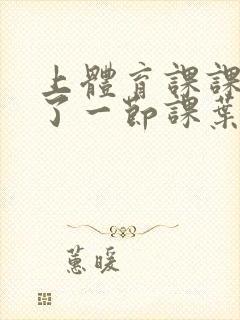 上體育課課
了一節課葉
蕙暖